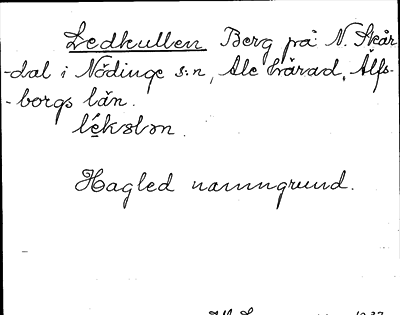 Ledkullen Berg på N. Skår
-dal i Nödinge s:n, Ale härad, Älfs-
-borgs län.

Hagled namngrund.